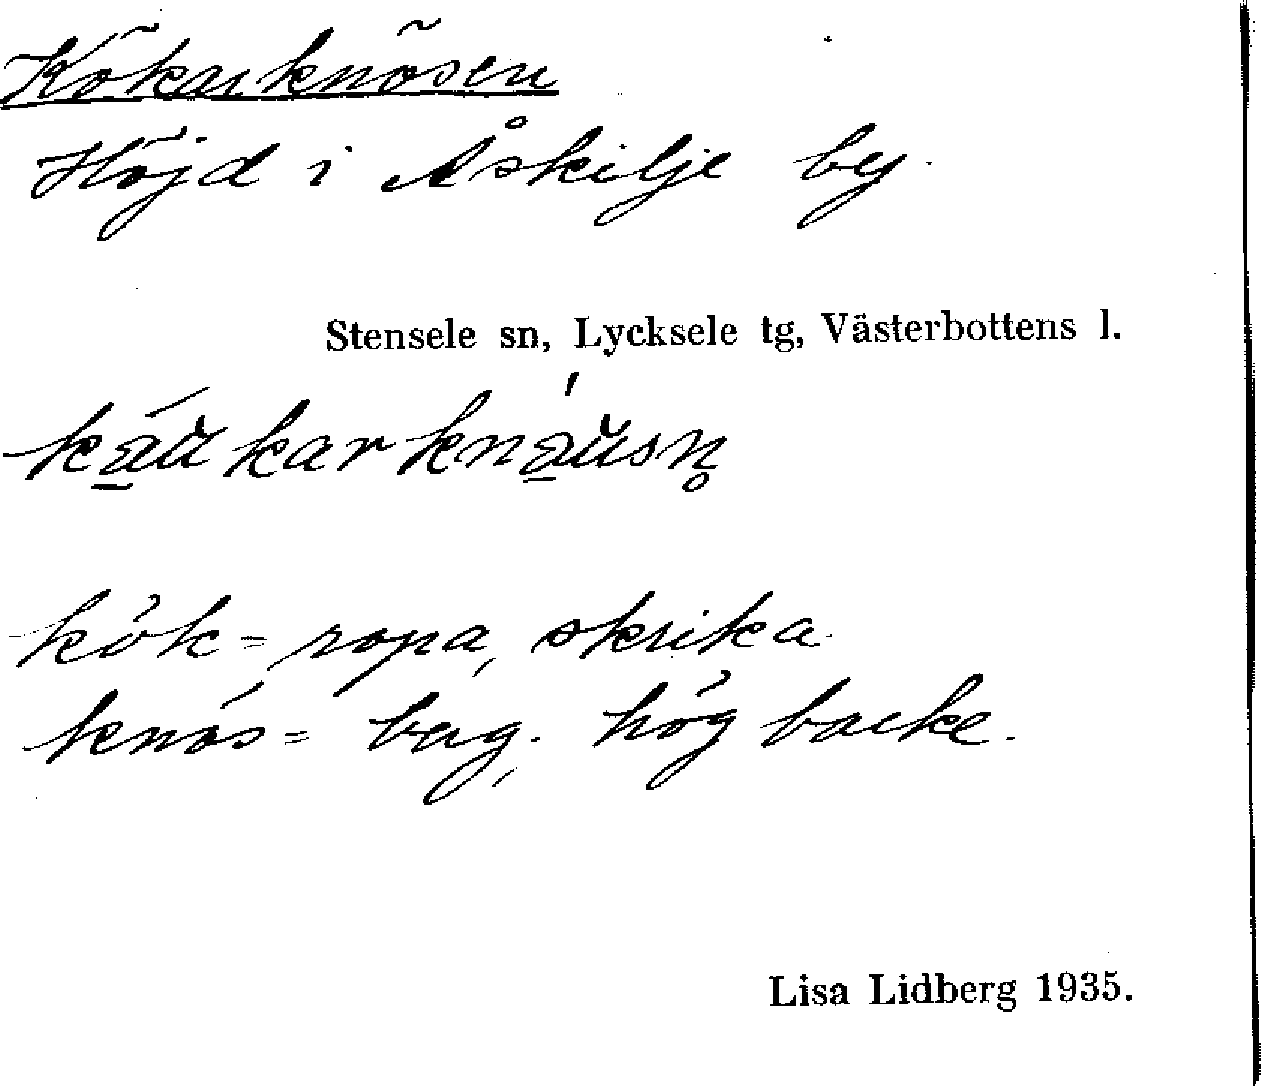 Kökarknösen
Höjd i Åskilje by.
Stensele sn, Lycksele tg, Västerbottens l.
ká̱u̯karkna̱u̯sn̥
kök = ropa, skrika
knös = berg, hög backe.
Lisa Lidberg 1935.